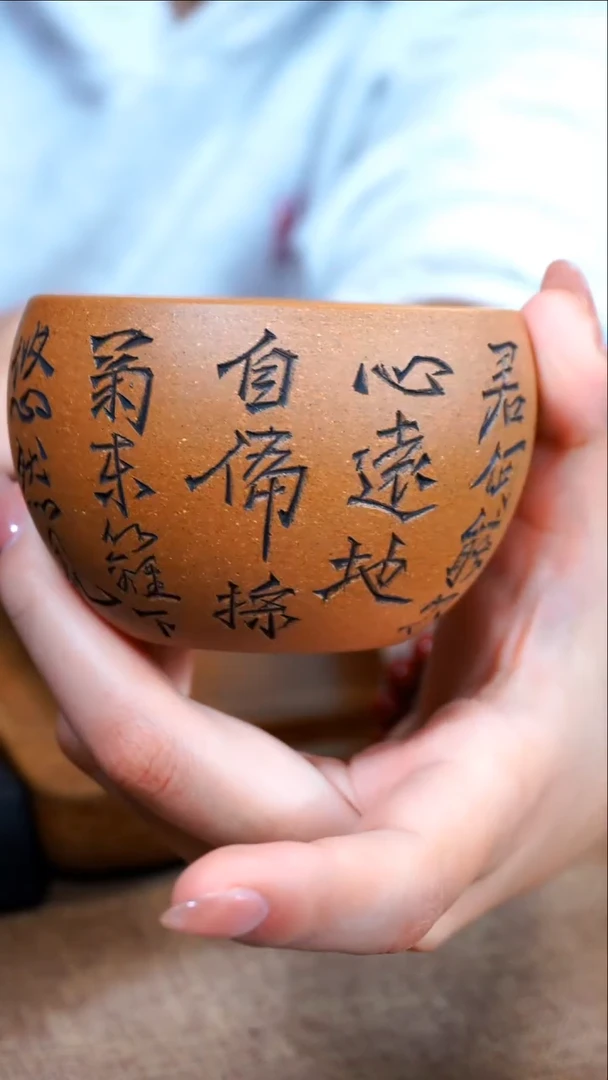 君何能
心遠地
自偏採
菊東籬下
悠然見